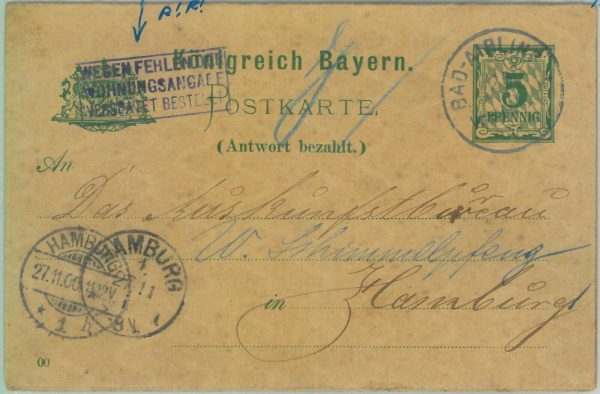 A.R!
WEGEN FEHLENDER
WOHNUNGSANGABE
VERSPÄTET BESTELLT
Königreich Bayern.
POSTKARTE.
(Antwort bezahlt.)
BAD-AIBLING
5
PFENNIG
An
Das Auskunftsbureau
W. Schimmelpfeng
in Hamburg
HAMBURG
27.11.00.
HAMBURG
00